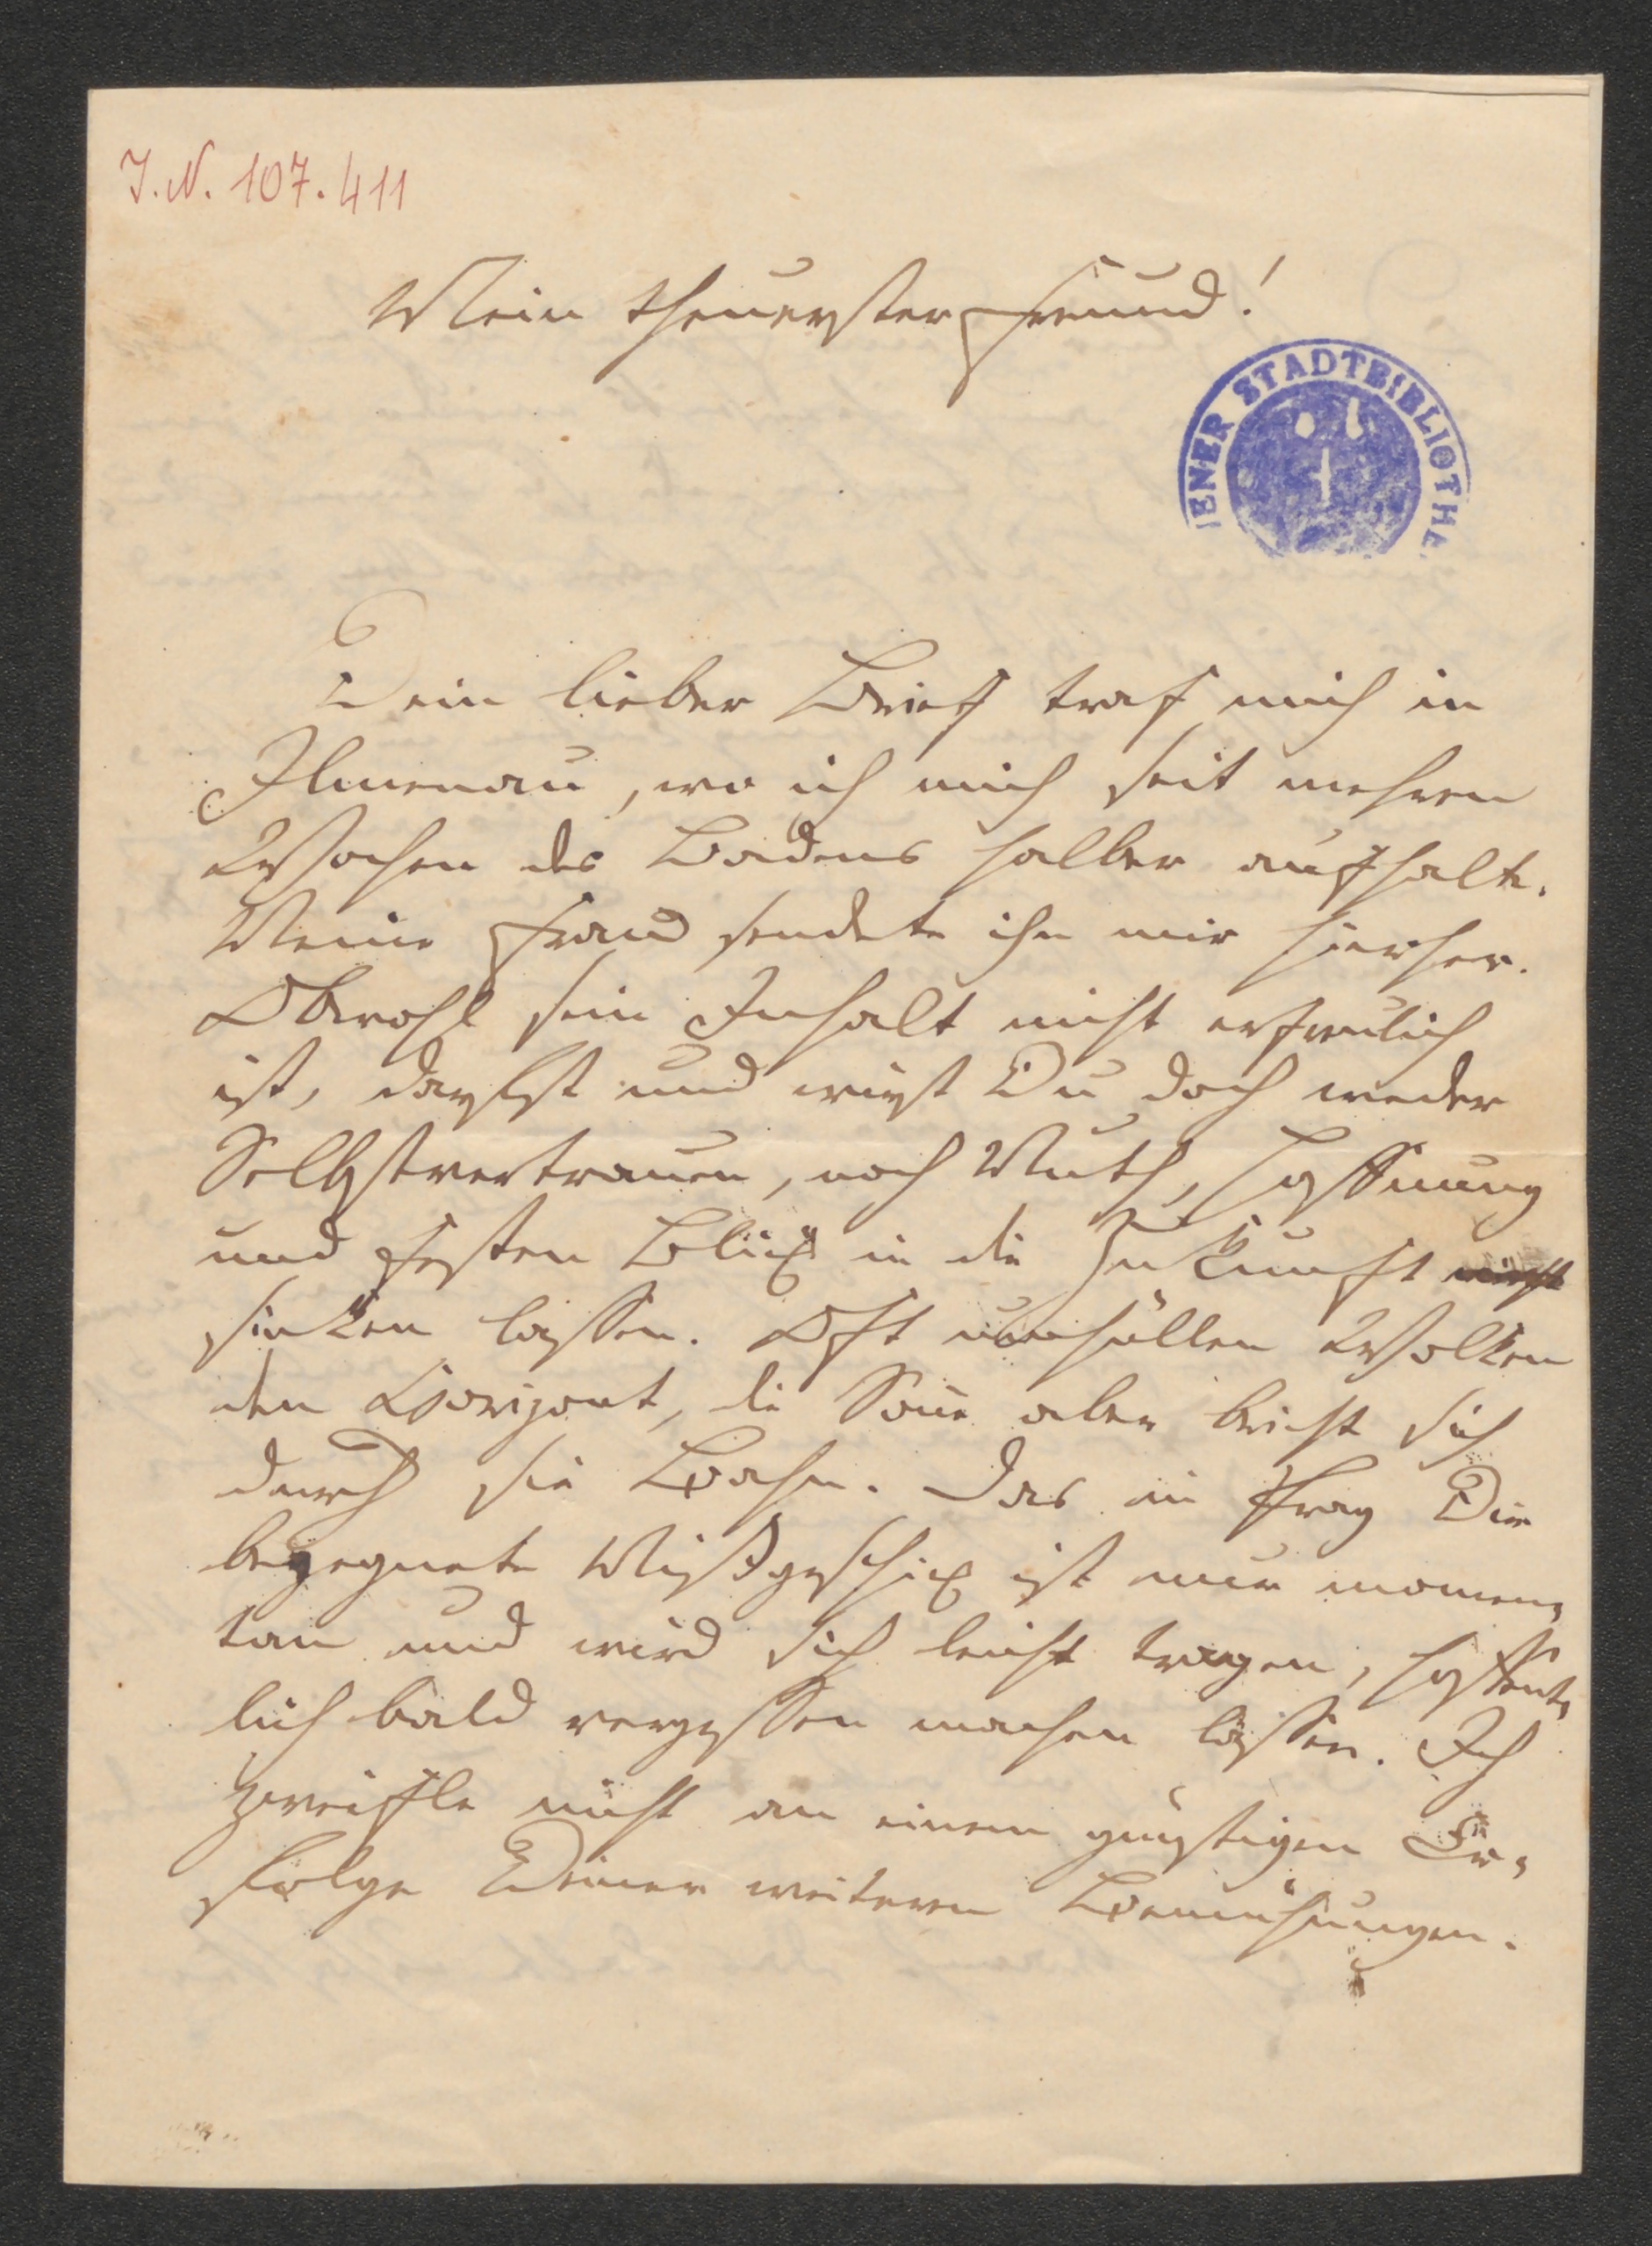 J.N. 107.411
Mein theuerster Freund!
WIENER STADTBIBLIOTHEK
Dein lieber Brief traf mich in
Ilmenau, wo ich mich seit mehren
Wochen des Badens halber aufhalte.
Meine Frau sendete ihn mir hierher.
Obwohl sein Inhalt nicht erfreulich
ist, darfst und wirst Du doch weder
Selbstvertrauen, noch Muth, Hoffnung
und festen Blick in die Zukunft
sinken lassen. Oft umhüllen Wolken
den Horizont, die Soñe aber bricht sich
durch sie Bahn. Das in Prag Dir
begegnete Mißgeschick ist nur momen-
tan und wird sich leicht tragen, hoffent-
lich bald vergessen machen lassen. Ich
zweifle nicht an einem günstigen Er-
folge Deiner weiteren Bemühungen.